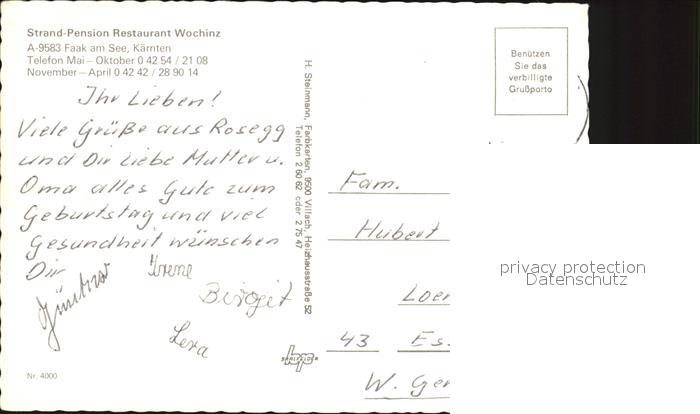 Strand-Pension Restaurant Wochinz
A-9583 Faak am See, Kärnten
Telefon Mai – Oktober 0 42 54 / 21 08
November – April 0 42 42 / 28 90 14
Ihr Lieben!
Viele Grüße aus Rosegg
und Dir liebe Mutter u.
Oma alles Gute zum
Geburtstag und viel
Gesundheit wünschen
Dir Irene
Günther
Birgit
Lena
Nr. 4000
H. Steinmann, Farbkarten, 9500 Villach, Heizhausstraße 52
Telefon 2 60 62 oder 2 75 47
Benützen
Sie das
verbilligte
Grußporto
Fam.
Hubert
Loer
43 Es.
W. Ger
privacy protection
Datenschutz